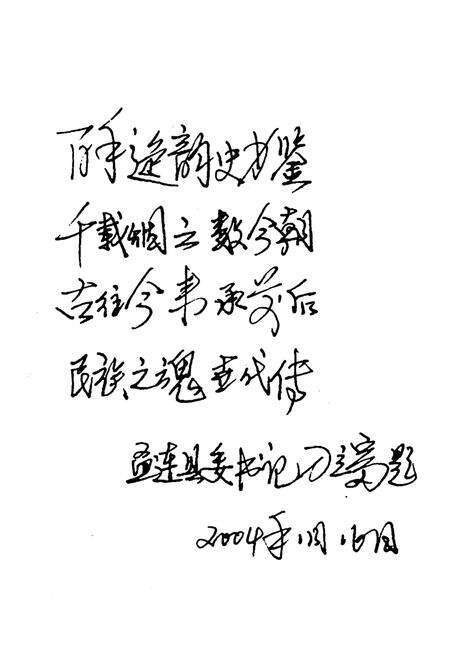 百年遗韵史为鉴
千载风云数今朝
古往今来承前后
民族之魂世代传
孟连县委书记刁立富题
2004年1月16日